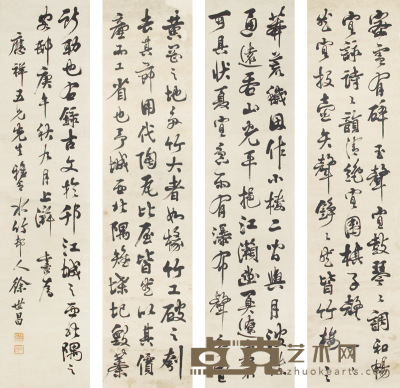 黃岡之地多竹大者如椽竹工破之刳
去其節用代陶瓦比屋皆然以其價
廉而工省也予城西北隅雉堞圮毀蓁
莽荒穢因作小樓二間與月波樓
通遠吞山光平挹江瀨幽闃遼敻不
可具狀夏宜急雨有瀑布聲冬宜
密雪有碎玉聲宜鼓琴琴調和暢
宜詠詩詩韻清絕宜圍棋子聲丁
丁然宜投壺矢聲錚錚然皆竹樓之
所助也右錄古文於邗江城之西北隅之
庚午秋九月上澣書為
應祥五兄先生雅正 水竹邨人徐世昌
艺术网